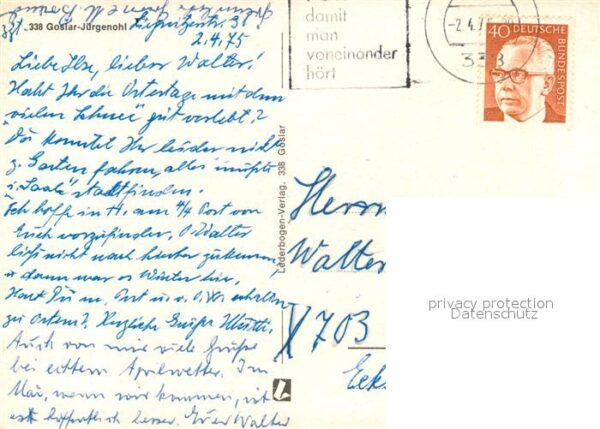 338 Goslar-Jürgenohl Liegnitzerstr. 31
2.4.75
Liebe Ilse, lieber Walter!
Habt Ihr die Ostertage mit dem
vielen Schnee gut verlebt?
Da konntet Ihr leider nicht
z. Garten fahren, alles mußte
i. Saale stattfinden.
Ich hoffe in H. am 4/4 Post von
Euch vorzufinden, Walter
ließ nicht nach hierher
u dann war es Winter hier,
Hast Du m. Post u.
zu Ostern? Herzliche Grüße Mutti.
Auch von mir viele Grüße
bei echtem Aprilwetter. Im
Mai, wenn wir kommen, ist
es hoffentlich besser. Euer Walter
Lederbogen-Verlag, 338 Goslar
damit
man
voneinander
hört
-2.4.75
338
40 DEUTSCHE
BUNDESPOST
Herrn
Walter
703
privacy protection
Datenschutz